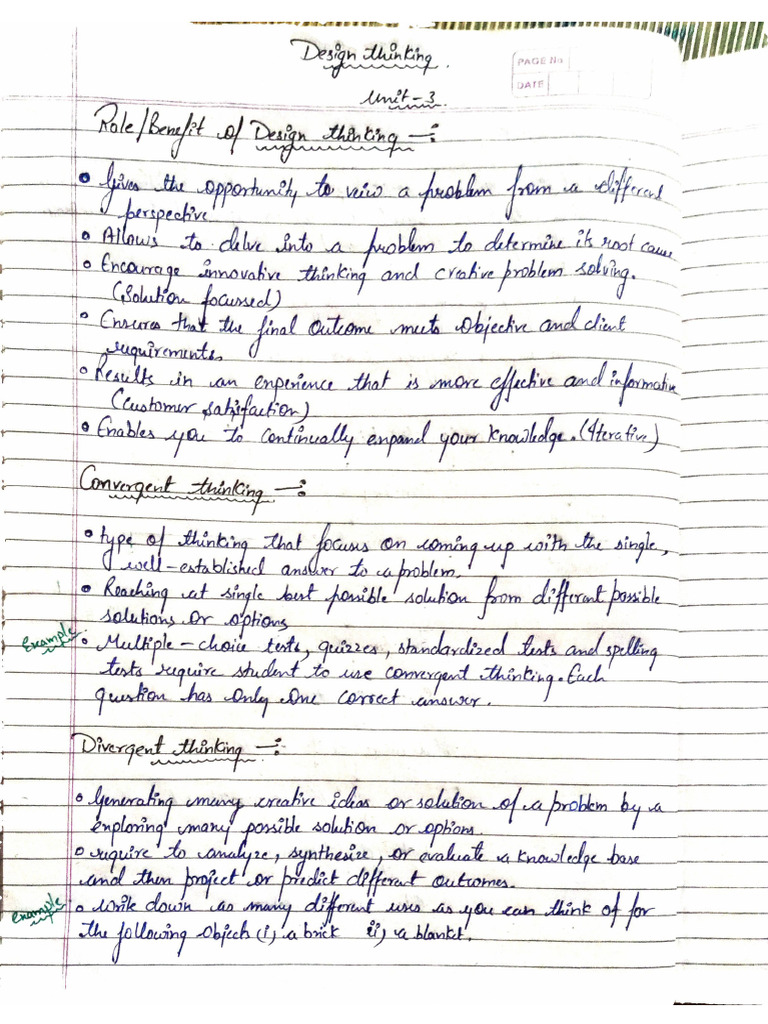 Design thinking.
PAGE No
DATE
Unit-3
Role/Benefit of Design thinking -:
• Gives the opportunity to view a problem from a different
perspective
• Allows to delve into a problem to determine its root cause
• Encourage innovative thinking and creative problem solving.
(Solution focussed)
• Ensures that the final outcome meets objective and client
requirements.
• Results in an experience that is more effective and informative
(Customer satisfaction)
• Enables you to continually expand your knowledge. (Iterative)
Convergent thinking -:
• type of thinking that focuses on coming up with the single,
well-established answer to a problem.
• Reaching at single best possible solution from different possible
solutions or options
Example • Multiple-choice tests, quizzes, standardized tests and spelling
tests require student to use convergent thinking. Each
question has only one correct answer.
Divergent thinking -:
• Generating many creative ideas, or solution of a problem by a
exploring many possible solution or options.
• require to analyze, synthesize, or evaluate a knowledge base
and then project or predict different outcomes.
example • write down as many different uses as you can think of for
the following objects (i) a brick ii) a blanket.